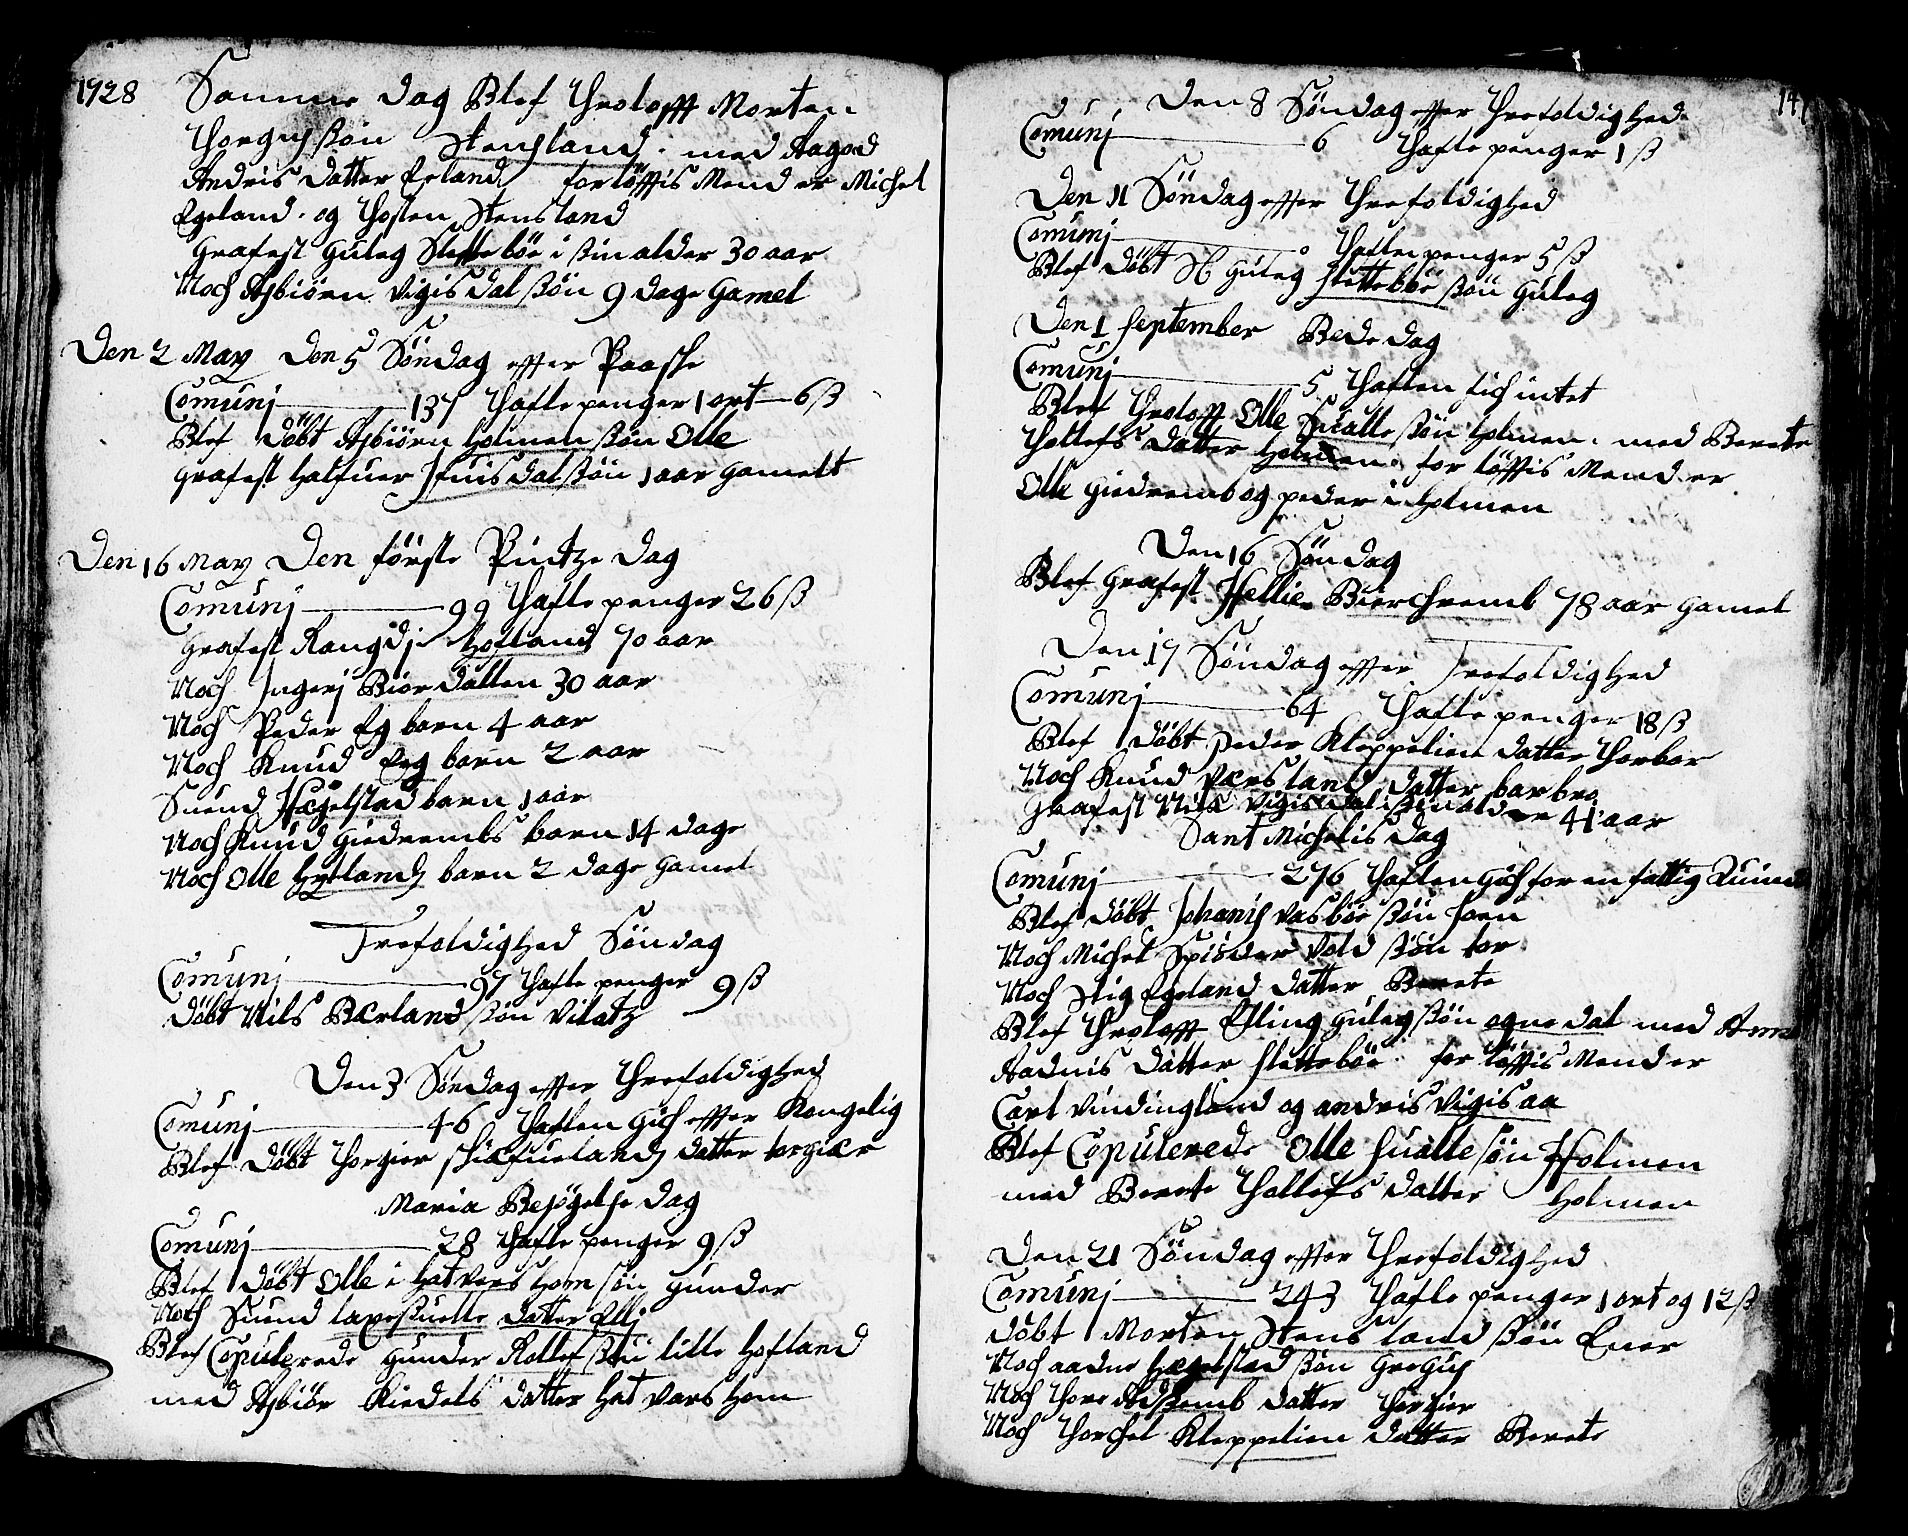 1728 Samme dag Blef Throlofft Morten
Thorgusßøn Stensland. med Aagod
Andris datter Egland forløffis Mend er Michel
Egeland. og Thosten Stensland
Grafest Guleg Slettebøe i ßin alder 30 aar
Noch Asbiørn Vigisdal ßøn 9 dage Gamel
Den 2 May Den 5 Søndag effter Paaske
Comunj 137 Tafle penger 1 ort 6 ß
Blef døbt Asbiørn Holmen ßøn Olle
Grafest Halfuer Ifuisdal ßøn 1 aar Gamelt
Den 16 May Den første Pindtze dag
Comunj 99 Tafle penger 26 ß
Grafest Rangdj Hofland 70 aar
Noch Ingerj Biordatten 30 aar
Noch Peder Eg barn 4 aar
Noch Knud Egg barn 2 aar
Suend Hægelstad barn 1 aar
Noch Knud Giedrembs barn 14 dage
Noch Olle Hytlands barn 2 dage Gamel
Trefoldighed Søndag
Comunj 97 Tafle penger 9 ß
døbt Nils Bærland ßøn Vilatz
Den 3 Søndag effter Threfoldighed
Comunj 46 Taflen Gich effter Kongelig
Blef døbt Thorgier Skiæfuelands datter torgiær
Maria Besøgelse dag
Comunj 28 Tafle penger 9 ß
Blef døbt Olle i Hatvarshom søn Gunder
Noch Suend laxesuelle datter Ellj
Blef Copulerede Gunder Rollefßøn lille Hofland
med Asbiør Kiedels datter Hatvarshom
147
Den 8 Søndag effter Threfoldighed
Comunj 6 Tafle penger 1 ß
Den 11 Søndag effter Threfoldighed
Comunj 0 Taflen penger 5 ß
Blef døbt Guleg Slettebøe ßøn Guleg
Den 1 September Bededag
Comunj 5 Taflen Fich intet
Blef Throloff Olle Sualle ßøn Holmen. med Berete
Tollefs datter Holmen. forløffis Mend er
Olle Giedremb og Peder i Holmen
Den 16 Søndag
Blef Grafest Hellie Bierchremb 78 aar Gamel
Den 17 Søndag effter Trefoldighed
Comunj 64 Tafle penger 18 ß
Blef døbt Peder Kleppelien datter Thorbor
Noch KnudVærsland datter barbro
Grafest Nils Vigisdal i ßin alder 41 aar
Sant Michelis dag
Comunj 276 Taflen Gich for en fattig Quinde
Blef døbt Johanis Vasbøe ßøn Jaen
Noch Michel Spiödervold ßøn tor
Noch Stig Egeland datter Berete
Blef Throlofft Esling Gulegßøn Ognedal med Anne
Aadnis datter Slettebøe. forløffis Mend er
Carl Vindingland og andris Vigisaa
Blef Copulerede Olle Sualle søn Holmen
med Berete Tollefs datter Holmen
Den 21 Søndag effter Threfoldighed
Comunj 243 Tafle penger 1 ort og 12 ß
døbt Morten Stensland ßøn Ener
Noch aadne Hægelstad ßøn Gregus
Noch Thore Adßemb datter Thorgier
Noch Thorchel Kleppelien datter Berete